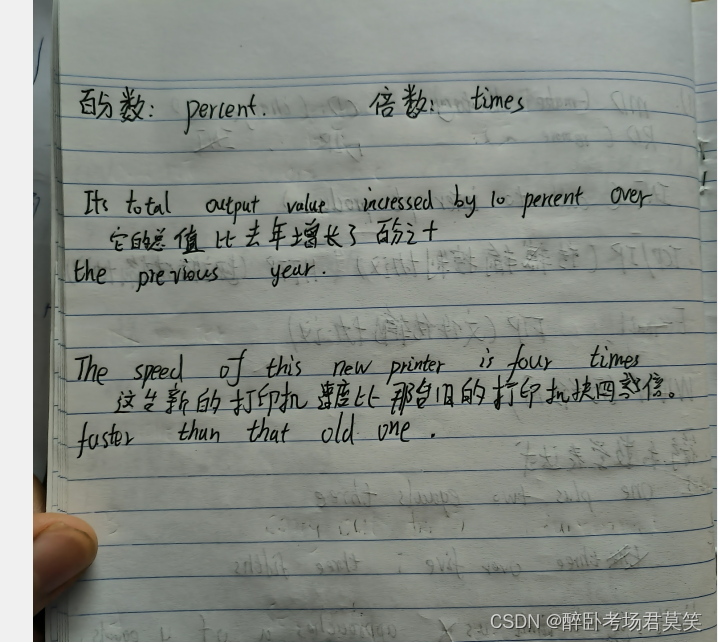 百分数: percent. 倍数: times
Its total output value incressed by 10 percent over
它的总值比去年增长了百分之十
the previous year.
The speed of this new printer is four times
这台新的打印机 速度比那台旧的打印机快四倍。
faster than that old one.
CSDN @醉卧考场君莫笑